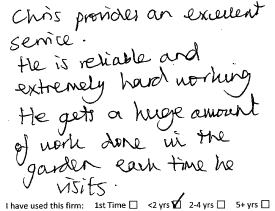 Chris provides an excellent
service.
He is reliable and
extremely hard working
He gets a huge amount
of work done in the
garden each time he
visits.
I have used this firm: 1st Time ☐ <2 yrs ☑ 2-4 yrs ☐ 5+ yrs ☐